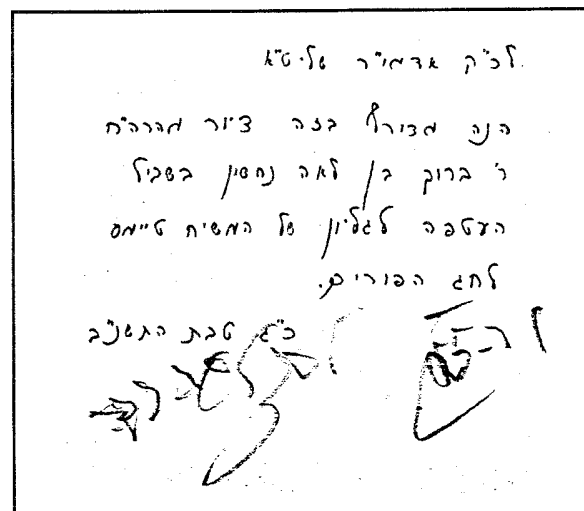 לכ"ק אדמו"ר שליט"א
הנה מצורף בזה ציור מהרה"ח
ר' ברוך בן לאה נחשון בשביל
העטפה לגליון של המשיח טיימס
לחג הפורים.
כ"ג טבת התשנ"ב